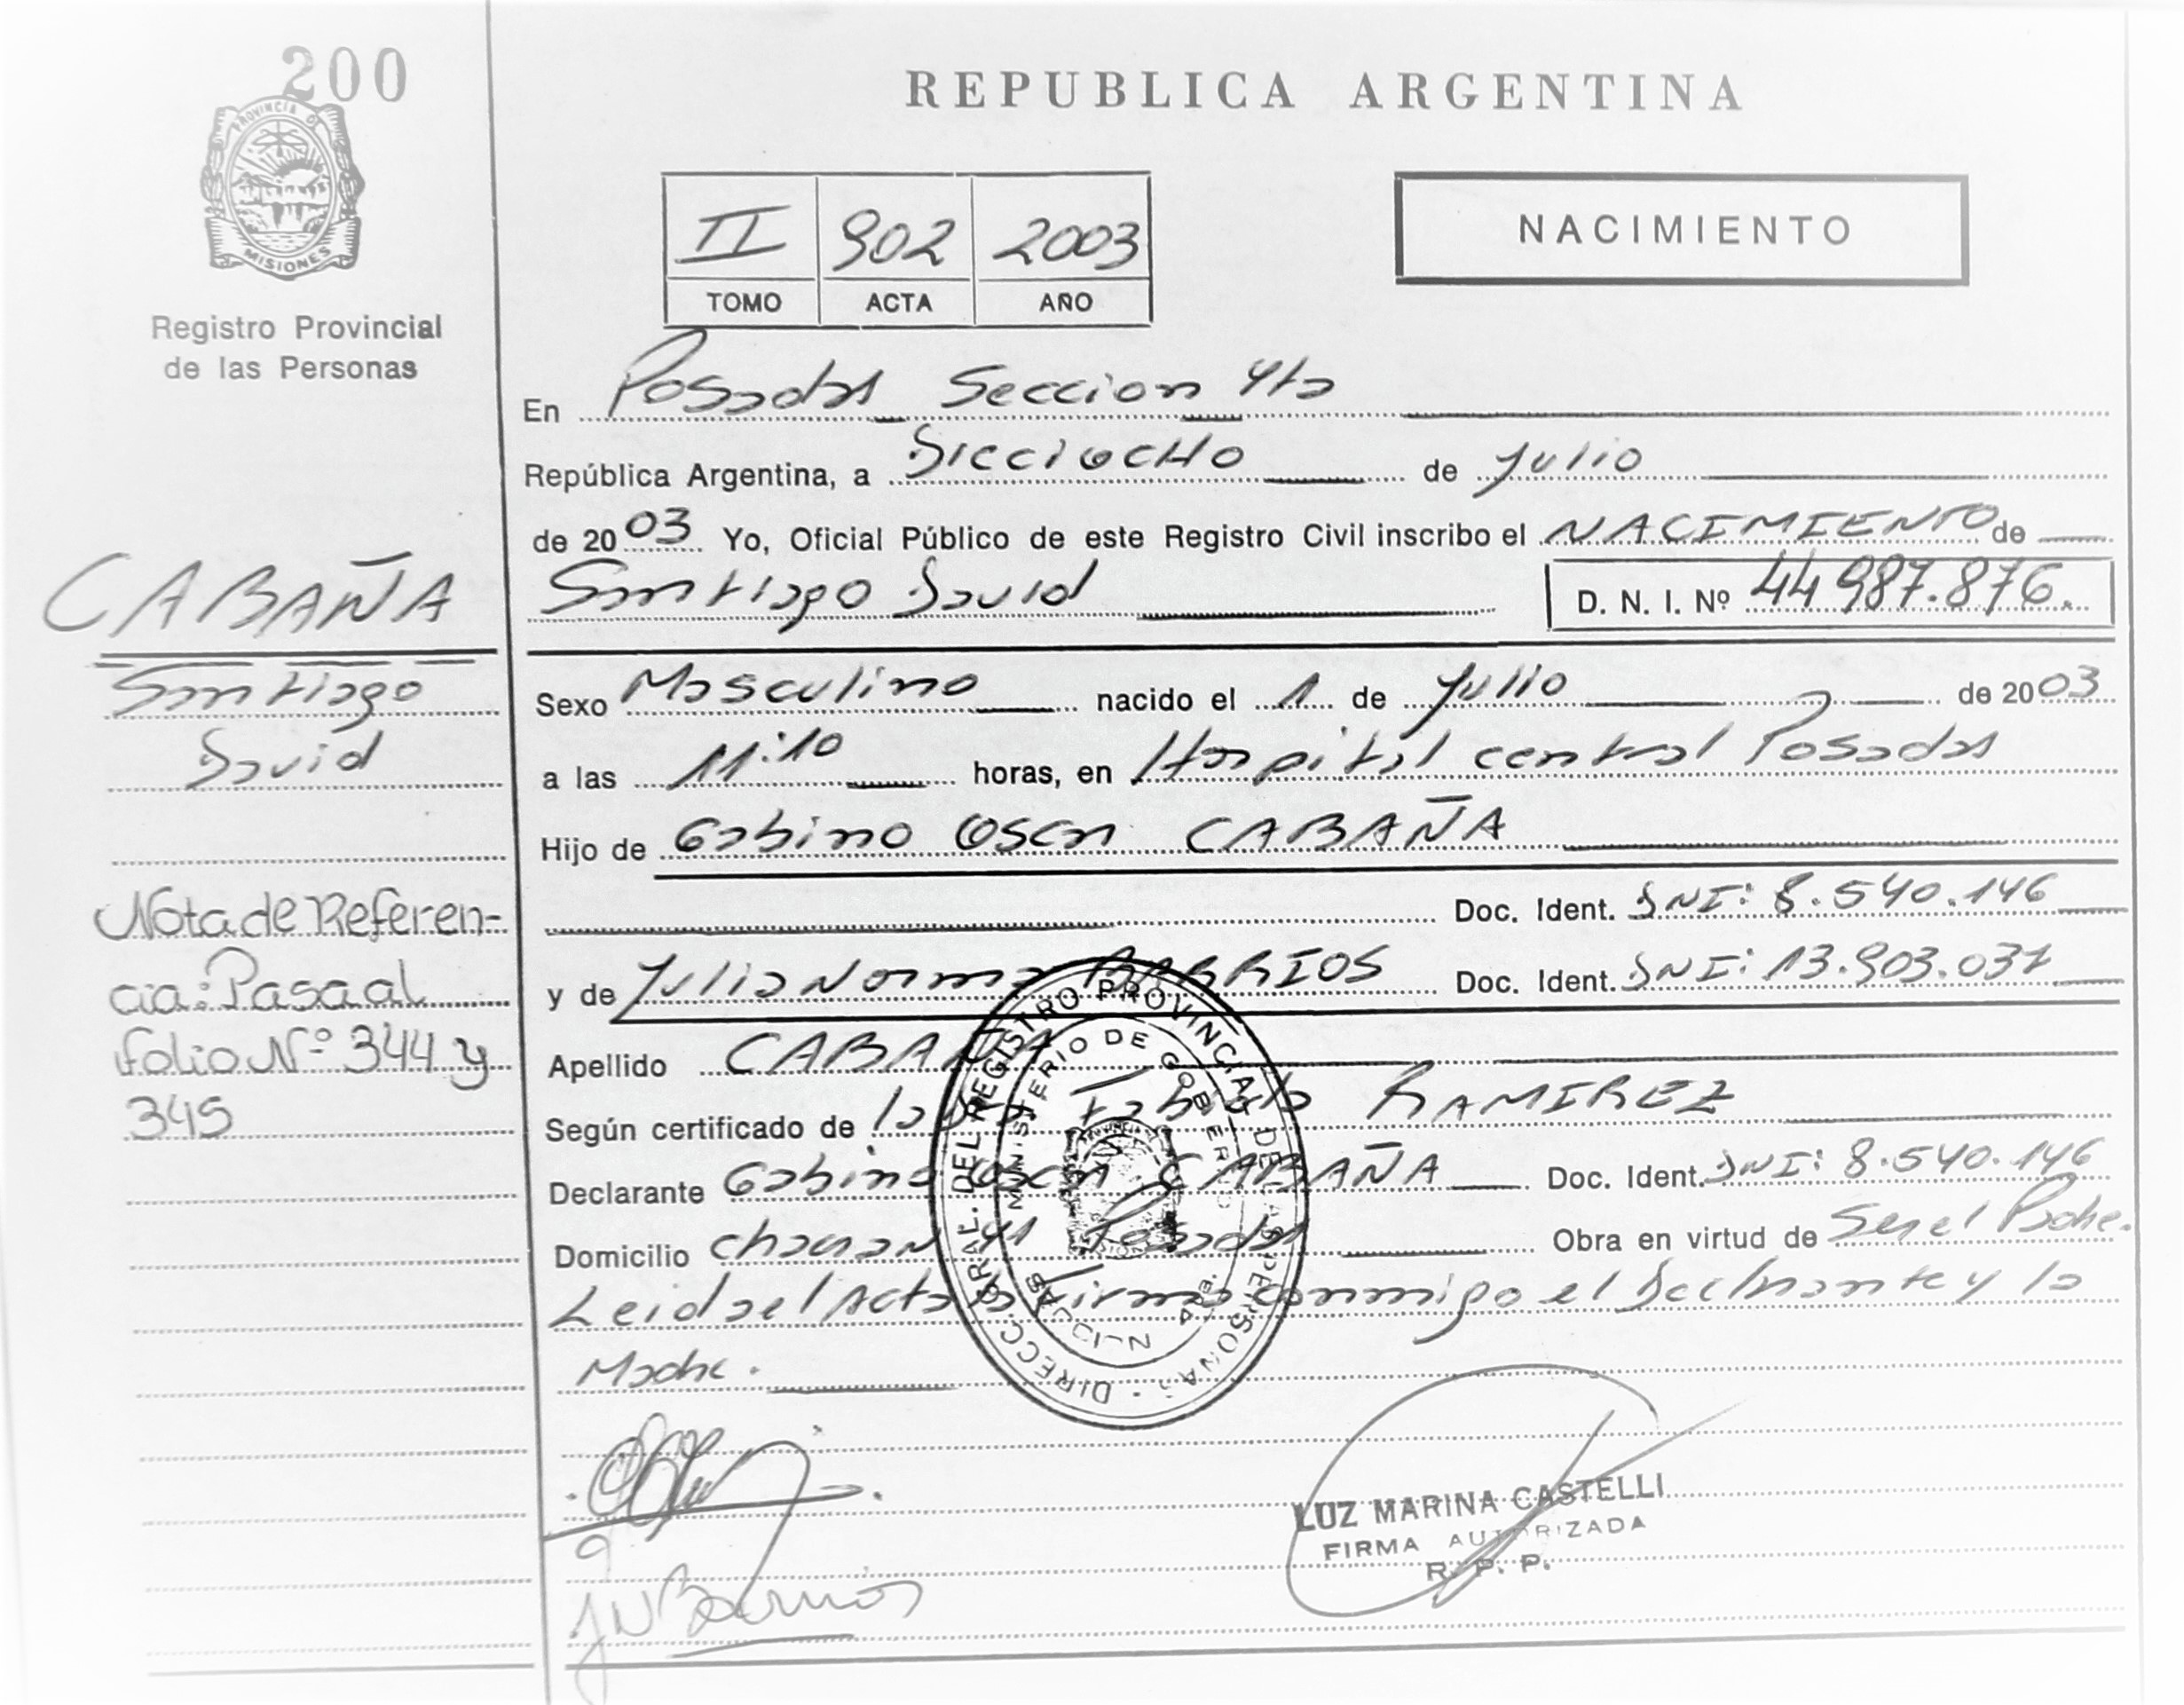 200
PROVINCIA DE
MISIONES
Registro Provincial
de las Personas
REPUBLICA ARGENTINA
II 902 2003
TOMO ACTA AÑO
NACIMIENTO
En Posadas Seccion 4ta
República Argentina, a Dieciocho de Julio
de 2003 Yo, Oficial Público de este Registro Civil inscribo el NACIMIENTO de
Santiago David D. N. I. Nº 44987.876.
CABAÑA
Santiago
David
Sexo Masculino nacido el 1 de Julio de 2003
a las 11:10 horas, en Hospital central Posadas
Hijo de Gabino Oscar CABAÑA
Doc. Ident. DNI: 8.540.146
y de Julia Norma BARRIOS Doc. Ident. DNI: 13.903.037
Apellido CABAÑA
Según certificado de RAMIREZ
Declarante Gabino Oscar CABAÑA Doc. Ident. DNI: 8.540.146
Domicilio 41 Posadas Obra en virtud de Ser el Padre.
Leida el Acta la firma conmigo el Declarante y la
Madre.
Nota de Referen-
cia: Pasa al
folio Nº 344 y
345
DIRECC. GRAL. DEL REGISTRO PROVINCIAL DE LAS PERSONAS
MINISTERIO DE GOBIERNO
J N Barrios
LUZ MARINA CASTELLI
FIRMA AUTORIZADA
R. P. P.